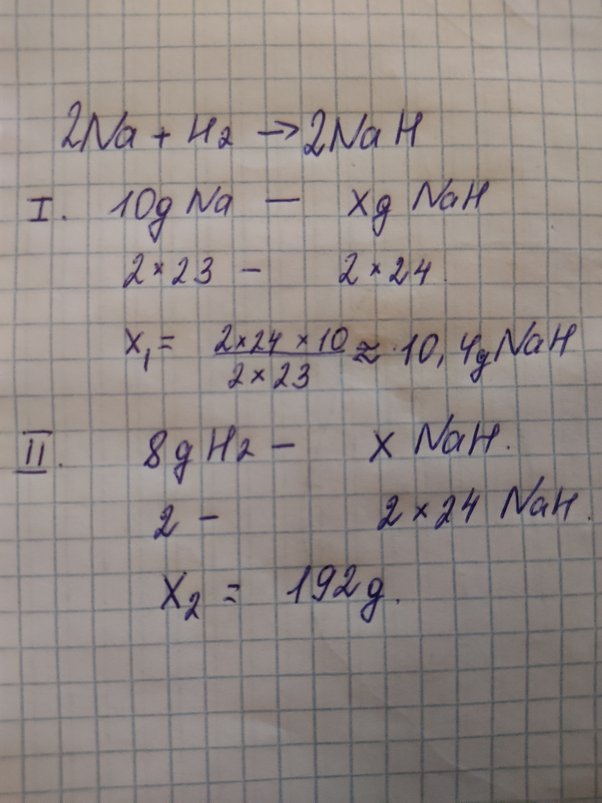 2Na + H2 → 2NaH
I. 10g Na — xg NaH
2×23 — 2×24
x₁ = 2×24×10 / 2×23 ≈ 10,4g NaH
II. 8g H2 — x NaH.
2 — 2×24 NaH.
x₂ = 192g.